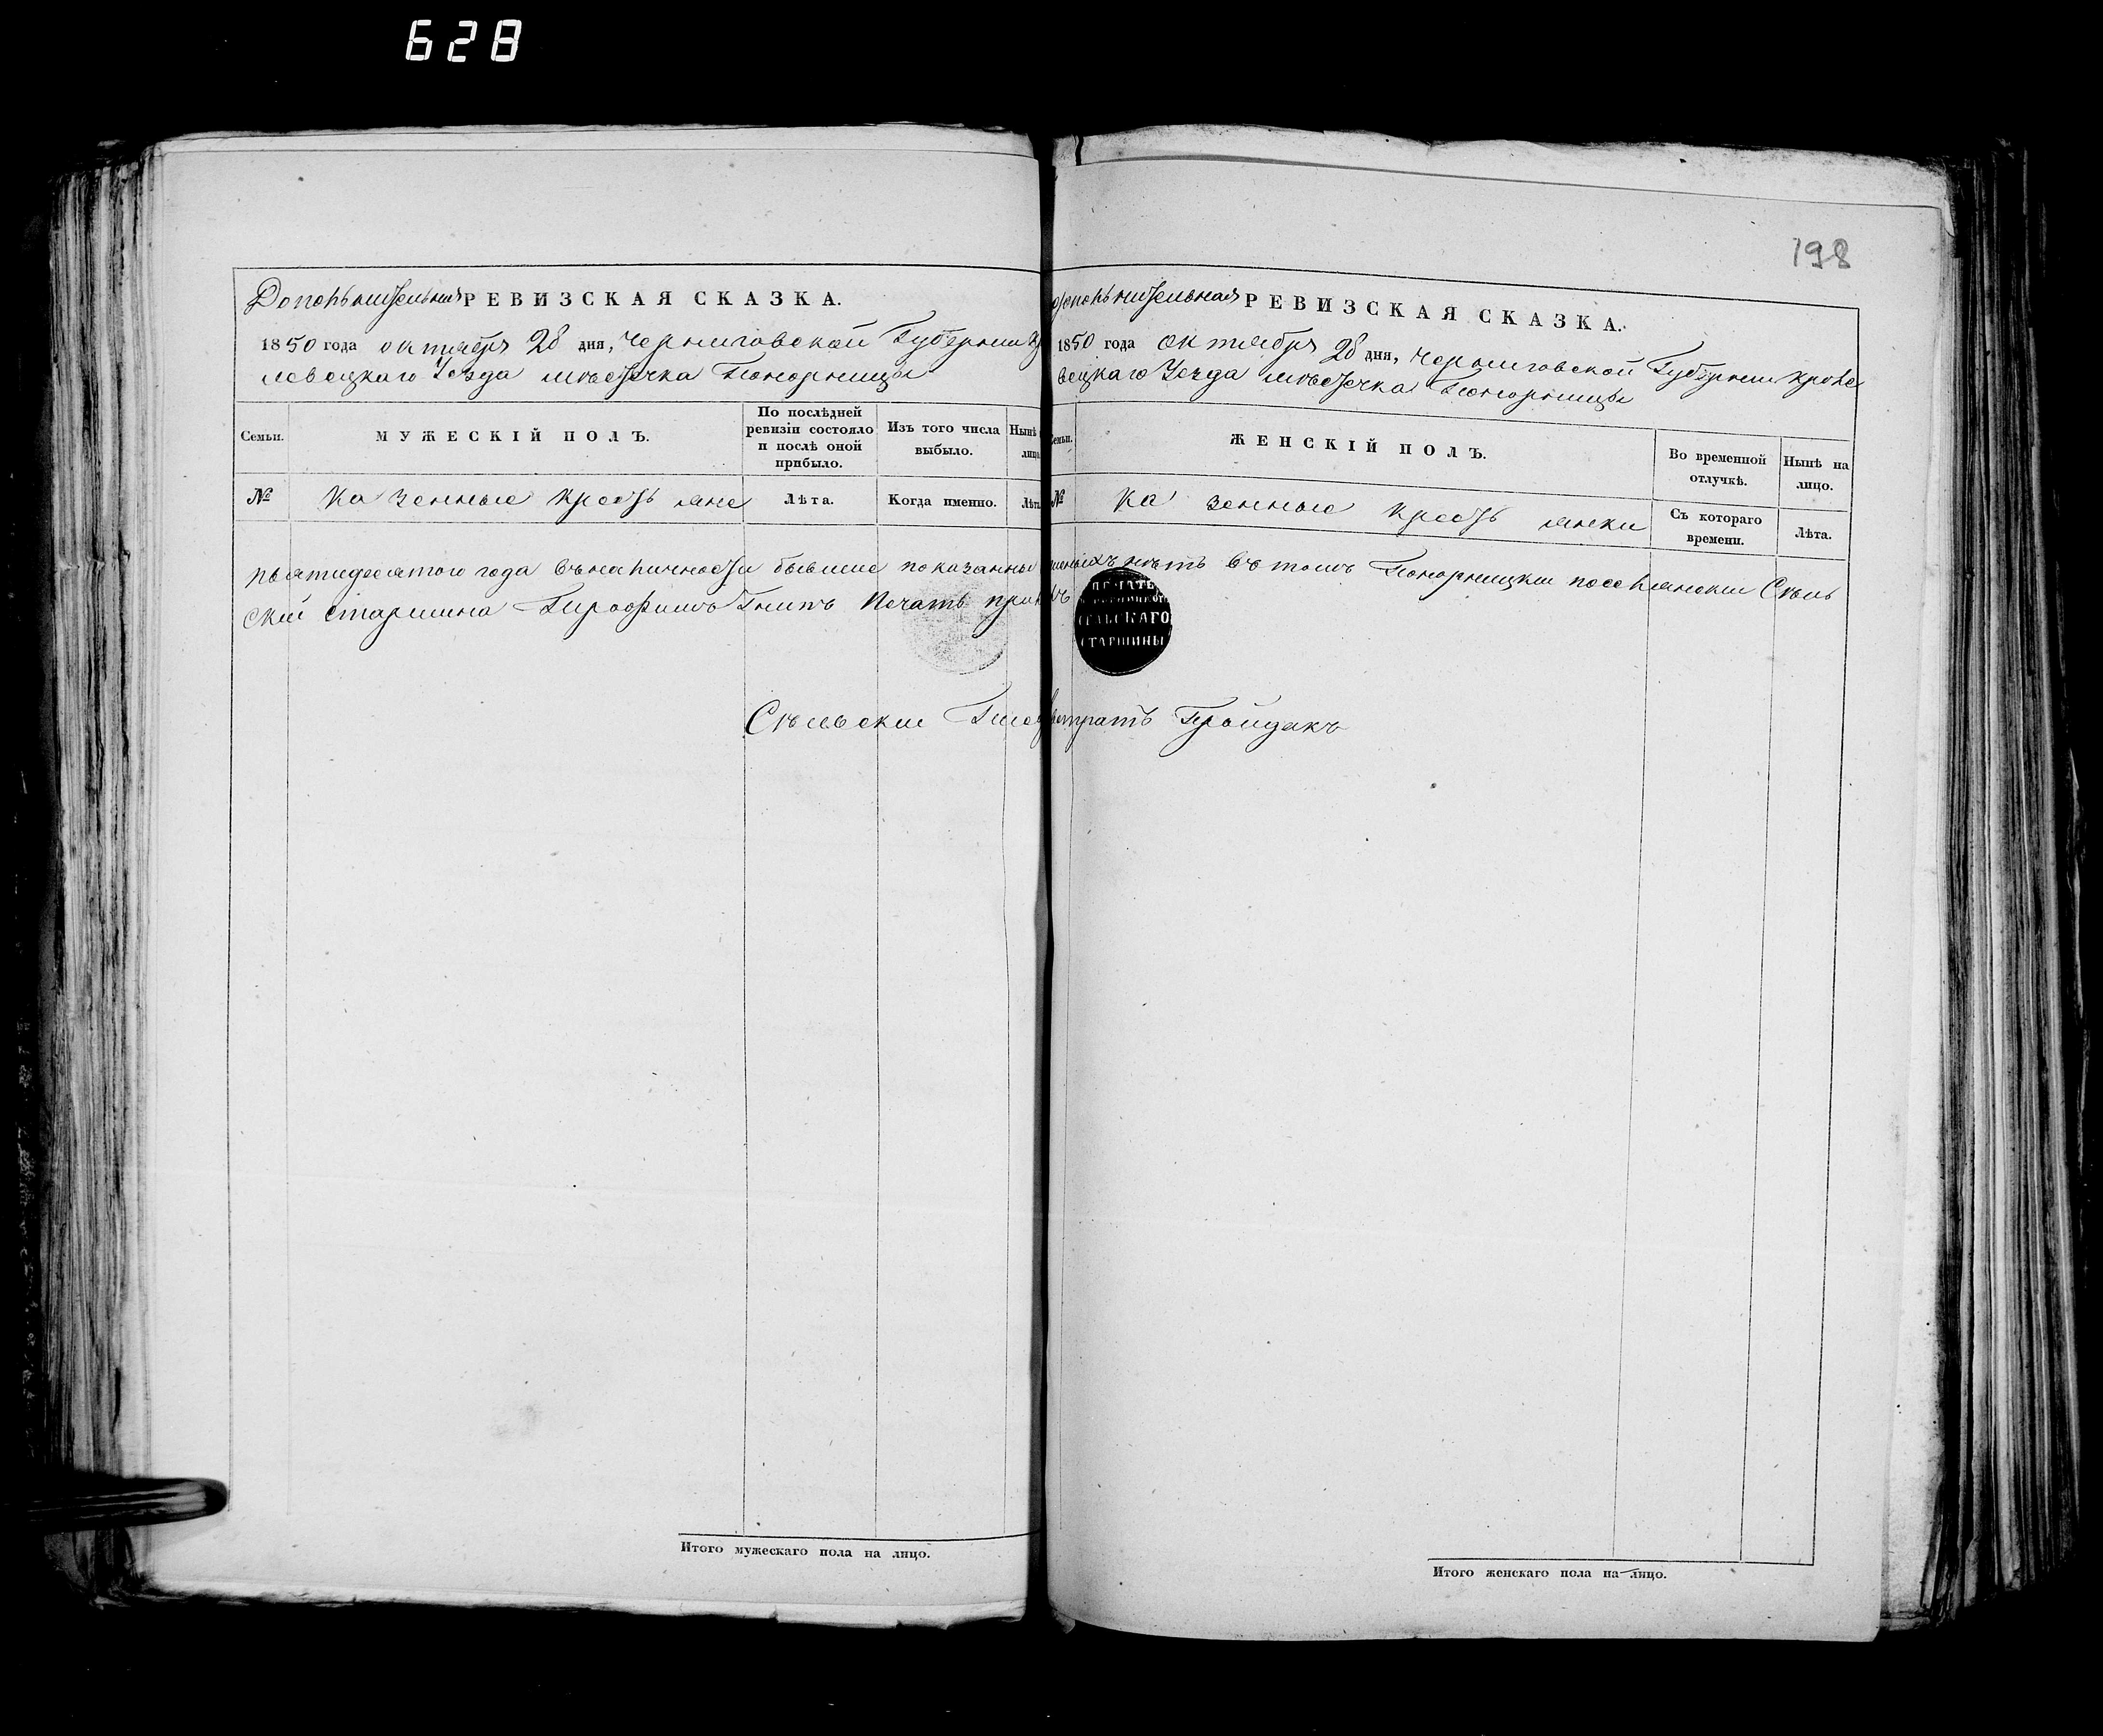 628
198
Дополнительная РЕВИЗСКАЯ СКАЗКА.
1850 года октября 28 дня, Черниговской Губернии
левецкаго Уезда местечка Понорницы
Семьи.
МУЖЕСКІЙ ПОЛЪ.
По послѣдней ревизіи состояло и послѣ оной прибыло.
Изъ того числа выбыло.
Нынѣ
лицо
№
Казенные крестьяне
Лѣта.
Когда именно.
Лѣта
пьятидесятого года въ наличности бывшие показаны
ский старшина Гнипъ Печать
Сельски
Итого мужескаго пола на лицо.
Дополнительная РЕВИЗСКАЯ СКАЗКА.
1850 года октября 28 дня, Черниговской Губернии Кроле
вецкаго Уезда местечка Понорницы
Семьи.
ЖЕНСКІЙ ПОЛЪ.
Во временной отлучкѣ.
Нынѣ на лицо.
№
Казенные крестьянки
Съ котораго времени.
Лѣта.
нетъ въ томъ Понорницкии поселянскии Сель
ПЕЧАТЬ
СЕЛЬСКАГО
СТАРШИНЫ
Итого женскаго пола на лицо.